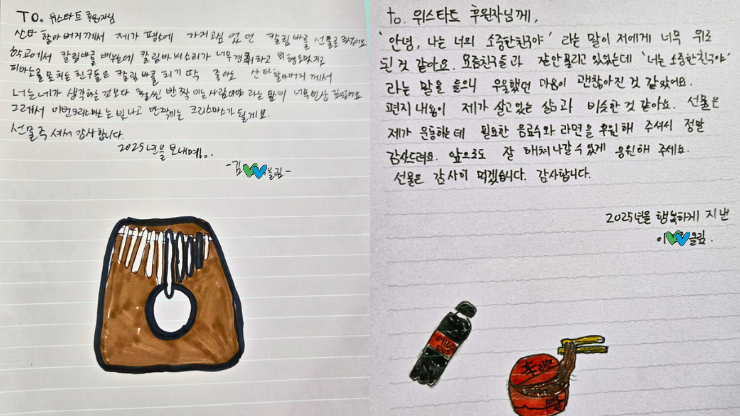 TO. 위스타트 후원자님
산타 할아버지께서 제가 평소에 가지고싶었던 칼림바를 선물로 주셨어요
학교에서 칼림바를 배웠는데 칼림바 소리가 너무
피아노를 못치는 친구들은 칼림바를 치기 딱 좋아요 산타할아버지께서
너는 네가 생각하는 것보다 훨씬 반짝이는 사람이야 라는 말이 너무
그래서 이번크리스마스는 빛나고 반짝이는 크리스마스가 될게요.
선물 주셔서 감사합니다.
2025년을 보내며..
-김 올림-
to. 위스타트 후원자님께,
'안녕, 나는 너의 소중한친구야' 라는 말이 저에게 너무 위로
된 것 같아요. 요즘친구들과 잘안풀리고 있었는데 '너는 소중한친구야'
라는 말을 들으니 우울했던 마음이 괜찮아진 것 같았어요.
편지 내용이 제가 살고있는 삶과 비슷한 것 같아요. 선물은
제가 운동하는데 필요한 음료수와 라면을 후원해 주셔서 정말
감사드려요. 앞으로도 잘 헤쳐나갈 수있게 응원해 주세요.
선물은 감사히 먹겠습니다. 감사합니다.
2025년을 행복하게 지낸
이 올림.